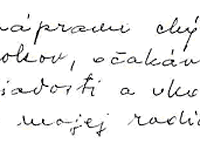 nápravu chý
okov, očakáv
iadosti a vho
mojej rodi